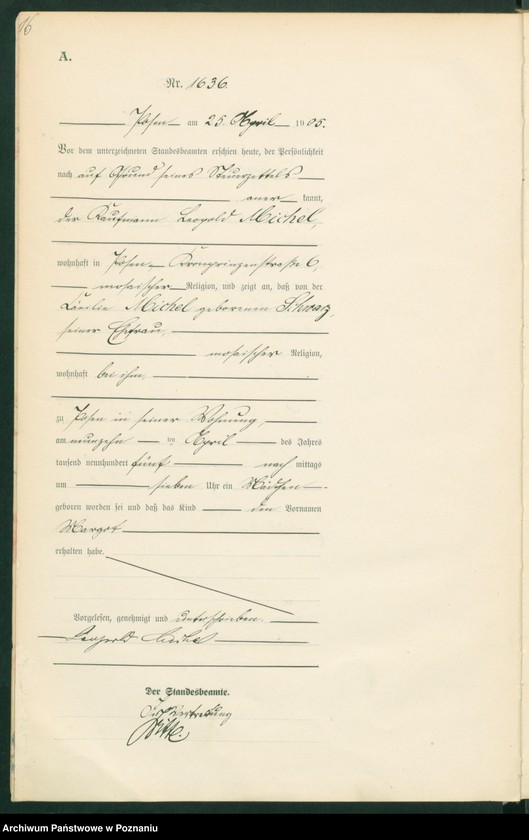 16
A.
Nr. 1636.
Posen am 25. April 1905.
Vor dem unterzeichneten Standesbeamten erschien heute, der Persönlichkeit
nach auf Grund seines Steuerzettels
aner kannt,
der Kaufmann Leopold Michel,
wohnhaft in Posen, Kronprinzenstraße 6,
mosaischer Religion, und zeigt an, daß von der
Cäcilie Michel geborenen
seiner Ehefrau,
mosaischer Religion,
wohnhaft bei ihm,
zu Posen in seiner Wohnung,
am neunzehn ten April des Jahres
tausend neunhundert fünf nach mittags
um sieben Uhr ein Mädchen
geboren worden sei und daß das Kind den Vornamen
Margot
erhalten habe.
Vorgelesen, genehmigt und unterschrieben.
Leopold Michel
Der Standesbeamte.
In Vertretung
Archiwum Państwowe w Poznaniu